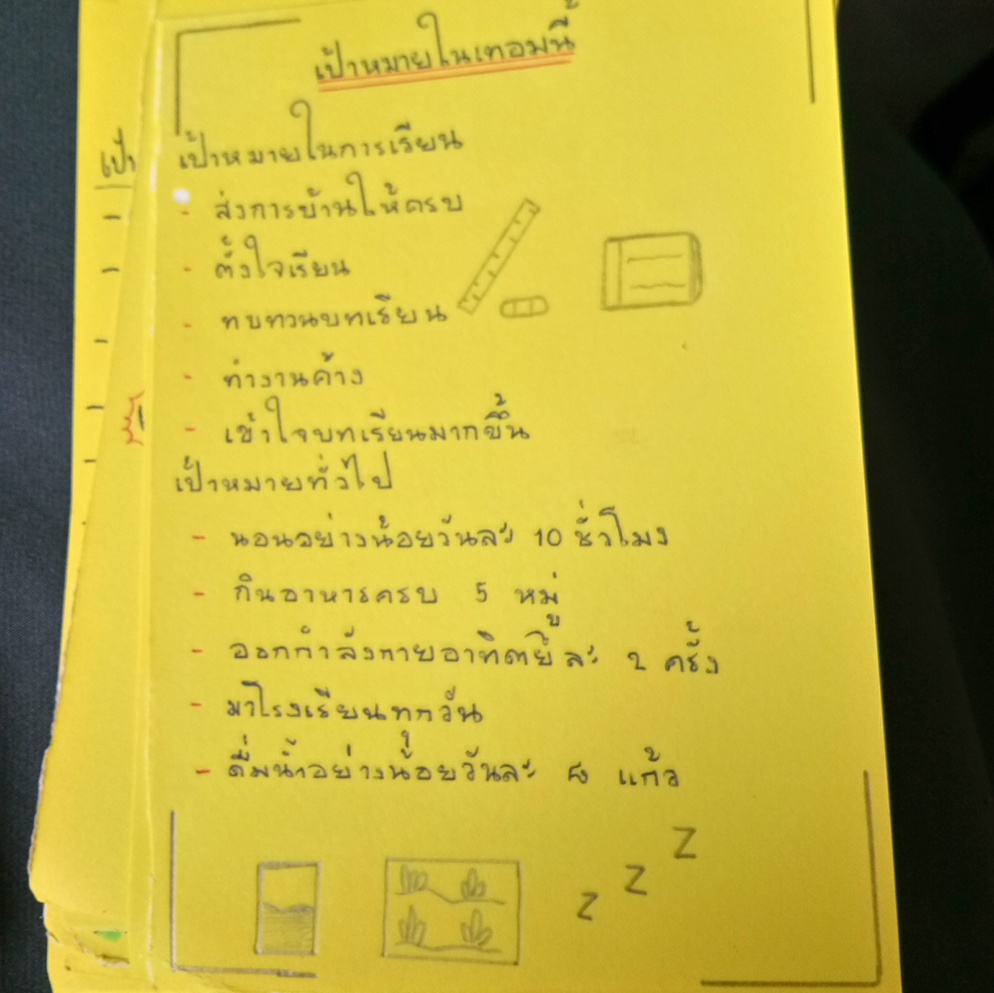 เป้าหมายในเทอมนี้
เป้าหมายในการเรียน
- ส่งการบ้านให้ครบ
- ตั้งใจเรียน
- ทบทวนบทเรียน
- ทำงานค้าง
- เข้าใจบทเรียนมากขึ้น
เป้าหมายทั่วไป
- นอนอย่างน้อยวันละ 10 ชั่วโมง
- กินอาหารครบ 5 หมู่
- ออกกำลังกายอาทิตย์ละ 2 ครั้ง
- มาโรงเรียนทุกวัน
- ดื่มน้ำอย่างน้อยวันละ 5 แก้ว
z z Z
เป้า